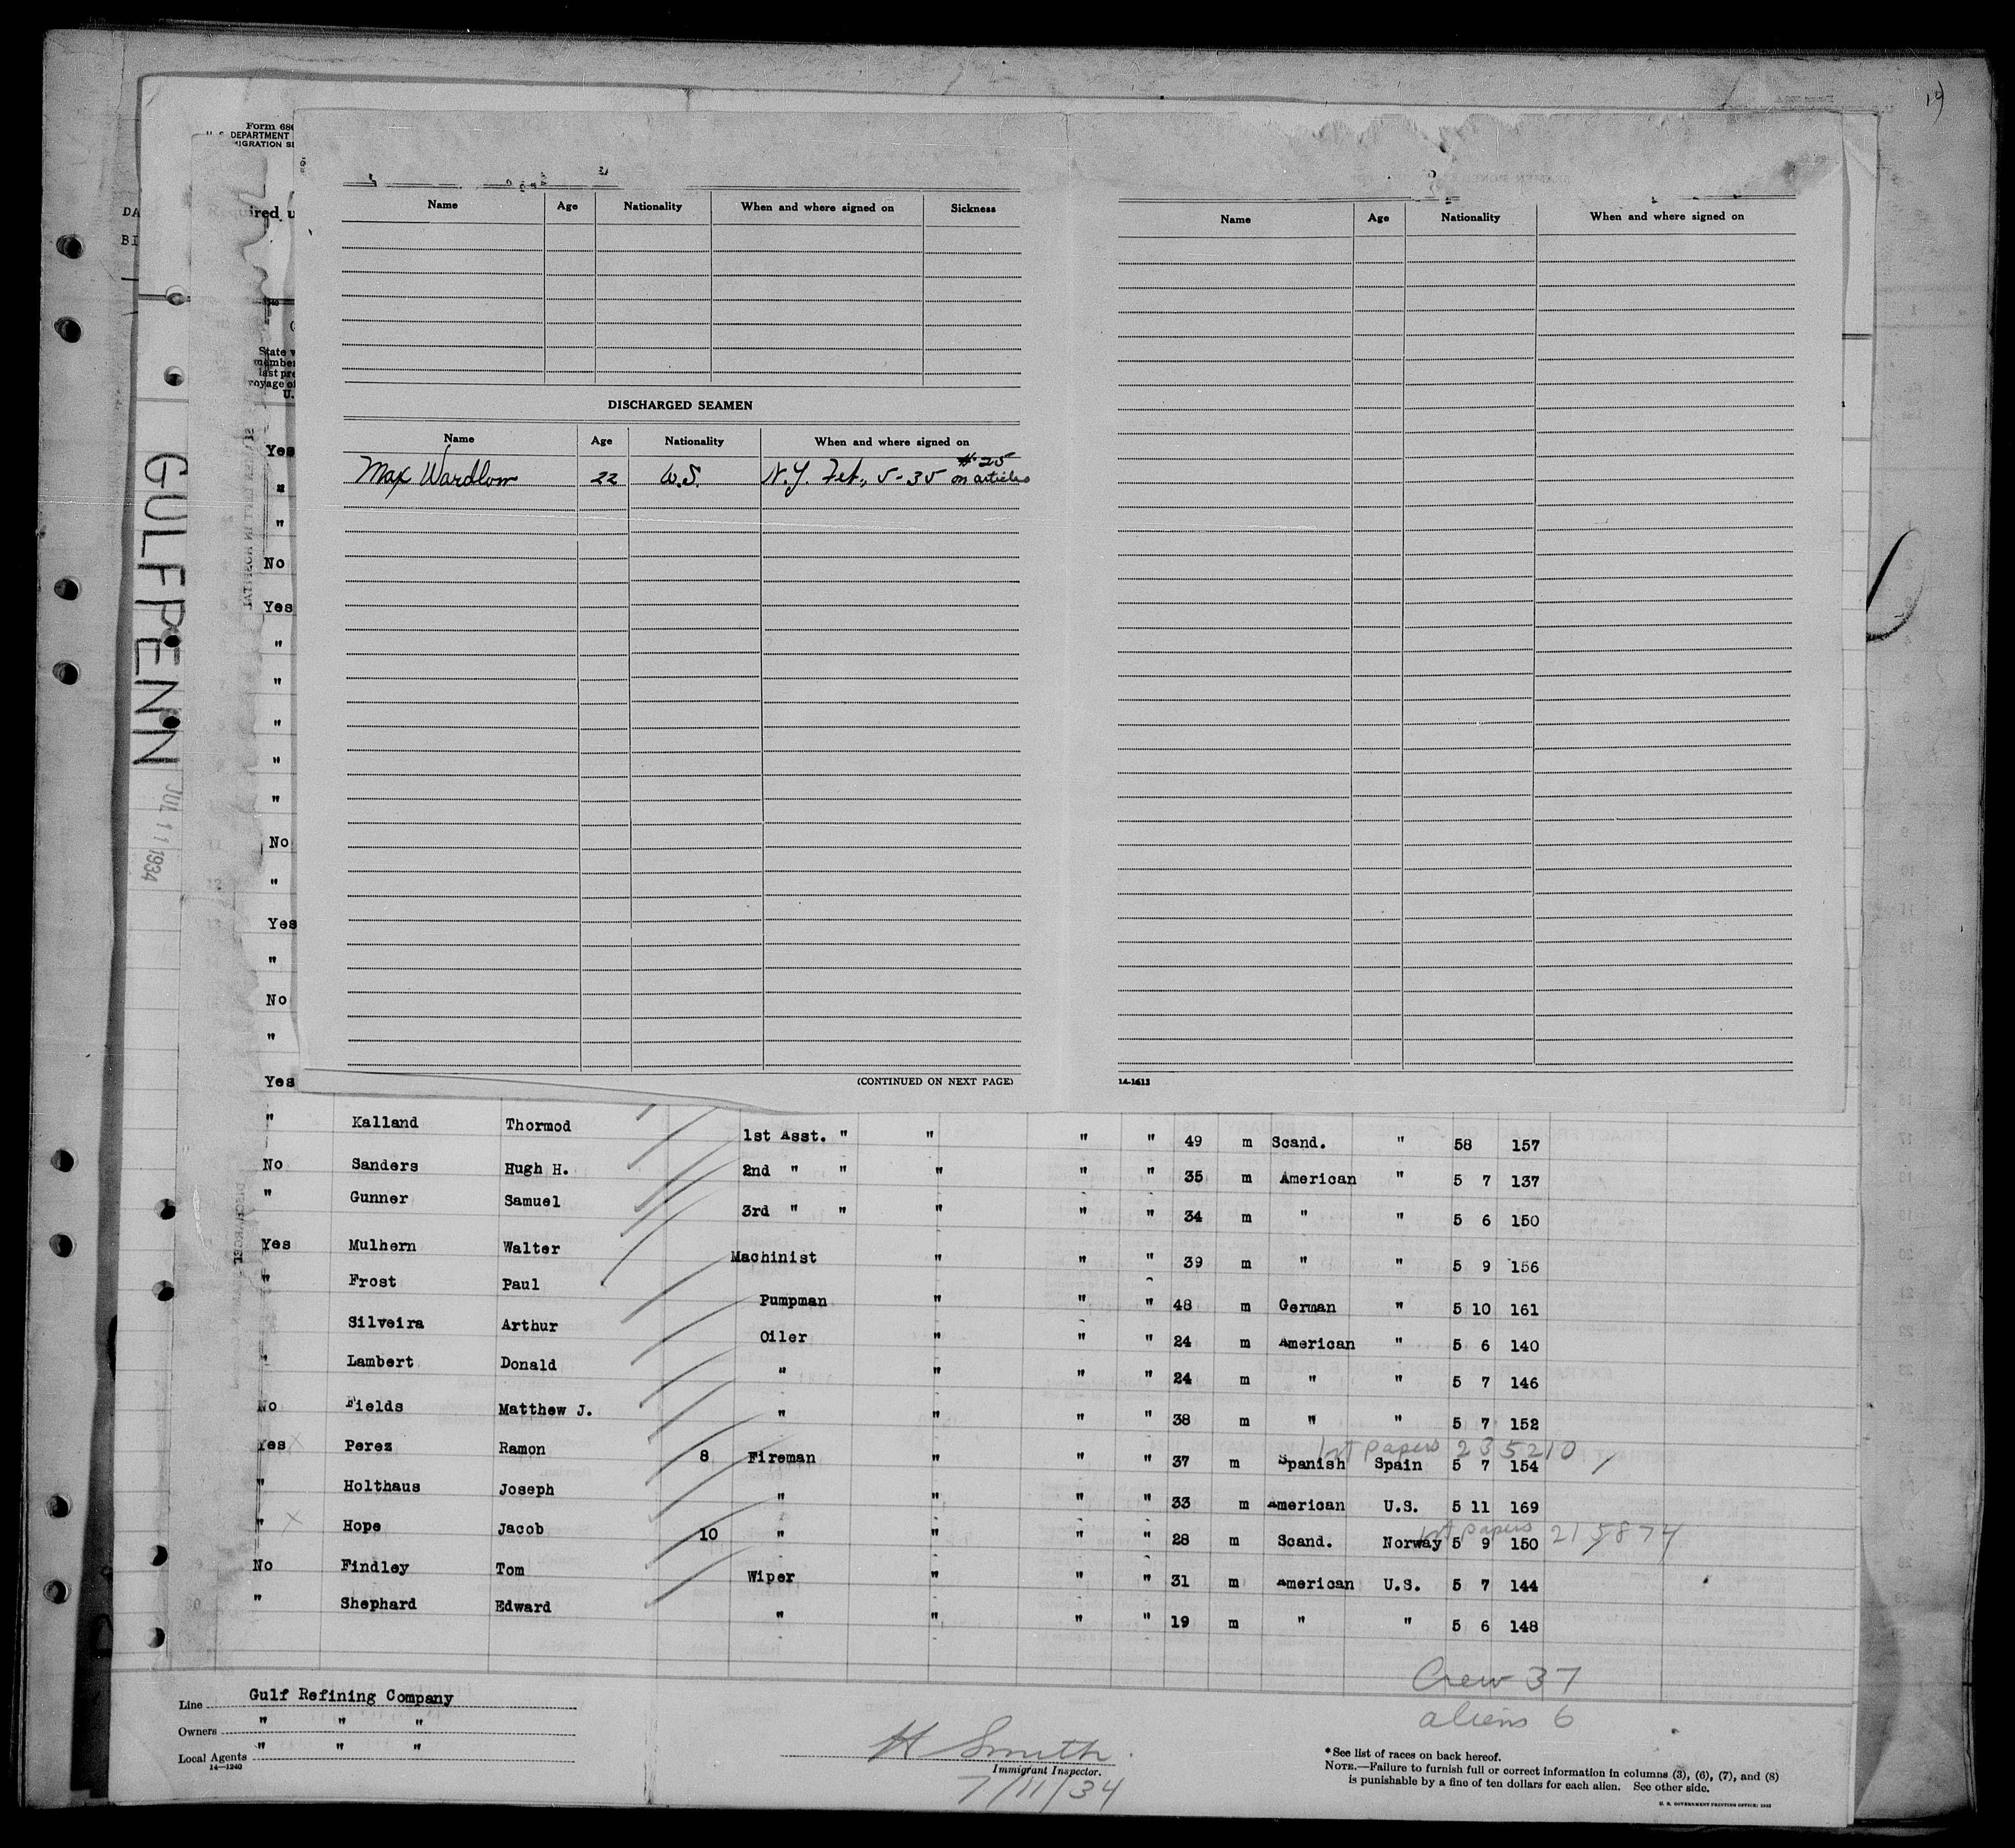 19
Form 680
U. S. DEPARTMENT
MIGRATION SE
Required, u
DA
BI
State w
member
last pre
voyage of
U.
GULFPENN
JUL 11 1934
Name Age Nationality When and where signed on Sickness
DISCHARGED SEAMEN
Name Age Nationality When and where signed on
# 25
Max Wardlow 22 U.S. N.Y. Feb., 5-35 on articles
(CONTINUED ON NEXT PAGE)
Name Age Nationality When and where signed on
14-1613
Yes
"
"
No
Yes
"
"
"
"
"
No
"
Yes
"
No
"
Yes
" Kalland Thormod 1st Asst. " " " " 49 m Scand. " 58 157
No Sanders Hugh H. 2nd " " " " " 35 m American " 5 7 137
" Gunner Samuel 3rd " " " " " 34 m " " 5 6 150
Yes Mulhern Walter Machinist " " " 39 m " " 5 9 156
" Frost Paul Pumpman " " " 48 m German " 5 10 161
Silveira Arthur Oiler " " " 24 m American " 5 6 140
" Lambert Donald " " " " 24 m " " 5 7 146
No Fields Matthew J. " " " " 38 m " " 5 7 152
1st papers 235210
Yes x Perez Ramon 8 Fireman " " " 37 m Spanish Spain 5 7 154
" Holthaus Joseph " " " " 33 m American U.S. 5 11 169
1st papers 215874
" x Hope Jacob 10 " " " " 28 m Scand. Norway 5 9 150
No Findley Tom Wiper " " " 31 m American U.S. 5 7 144
" Shephard Edward " " " " 19 m " " 5 6 148
Crew 37
aliens 6
Line Gulf Refining Company
Owners " " "
Local Agents " " "
14—1240
H Smith
Immigrant Inspector.
7/11/34
*See list of races on back hereof.
NOTE.—Failure to furnish full or correct information in columns (3), (6), (7), and (8)
is punishable by a fine of ten dollars for each alien. See other side.
U. S. GOVERNMENT PRINTING OFFICE: 1933